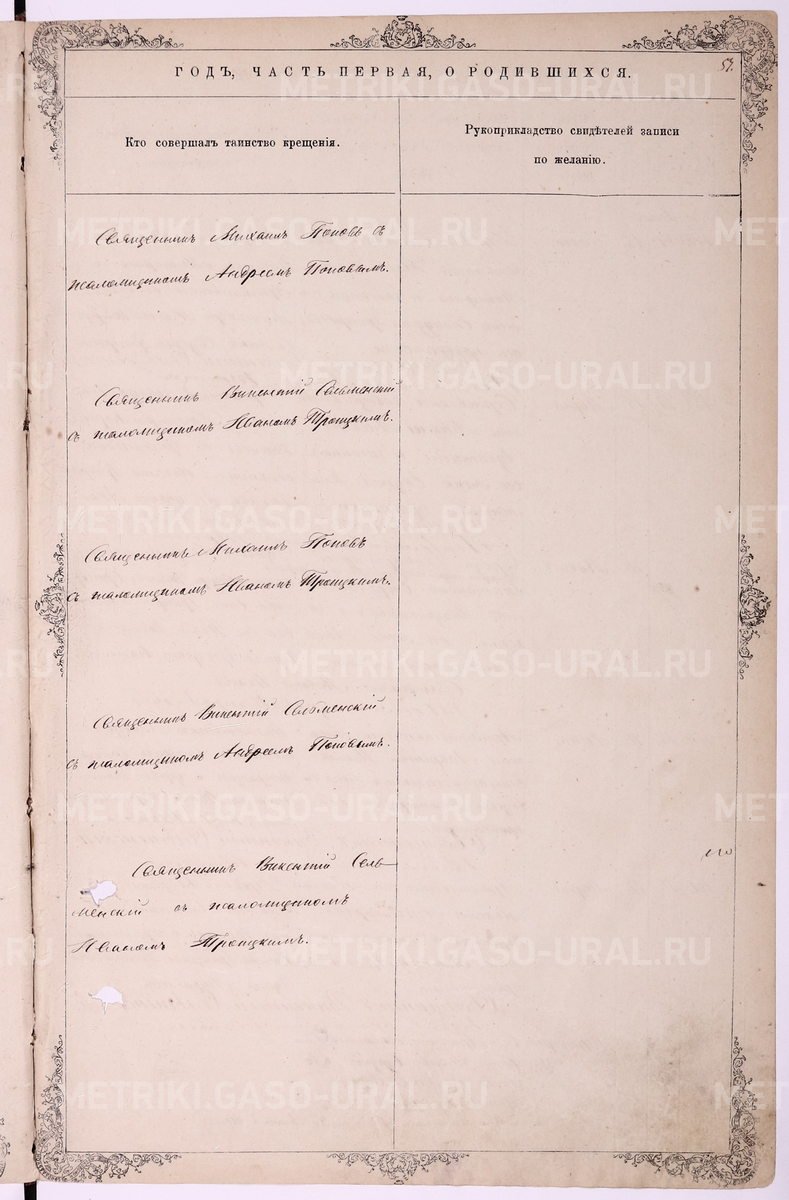 57.
ГОДЪ, ЧАСТЬ ПЕРВАЯ, О РОДИВШИХСЯ.
Кто совершалъ таинство крещенія.
Рукоприкладство свидѣтелей записи
по желанію.
Священникъ Михаилъ Поповъ съ
псаломщикомъ Андреемъ Поповымъ.
Священникъ Викентій Сельменскій
съ псаломщикомъ Иваномъ Троицкимъ.
Священникъ Михаилъ Поповъ
съ псаломщикомъ Иваномъ Троицкимъ.
Священникъ Викентій Сельменскій
съ псаломщикомъ Андреемъ Поповымъ.
Священникъ Викентій Сель-
менскій съ псаломщикомъ
Иваномъ Троицкимъ.
METRIKI.GASO-URAL.RU